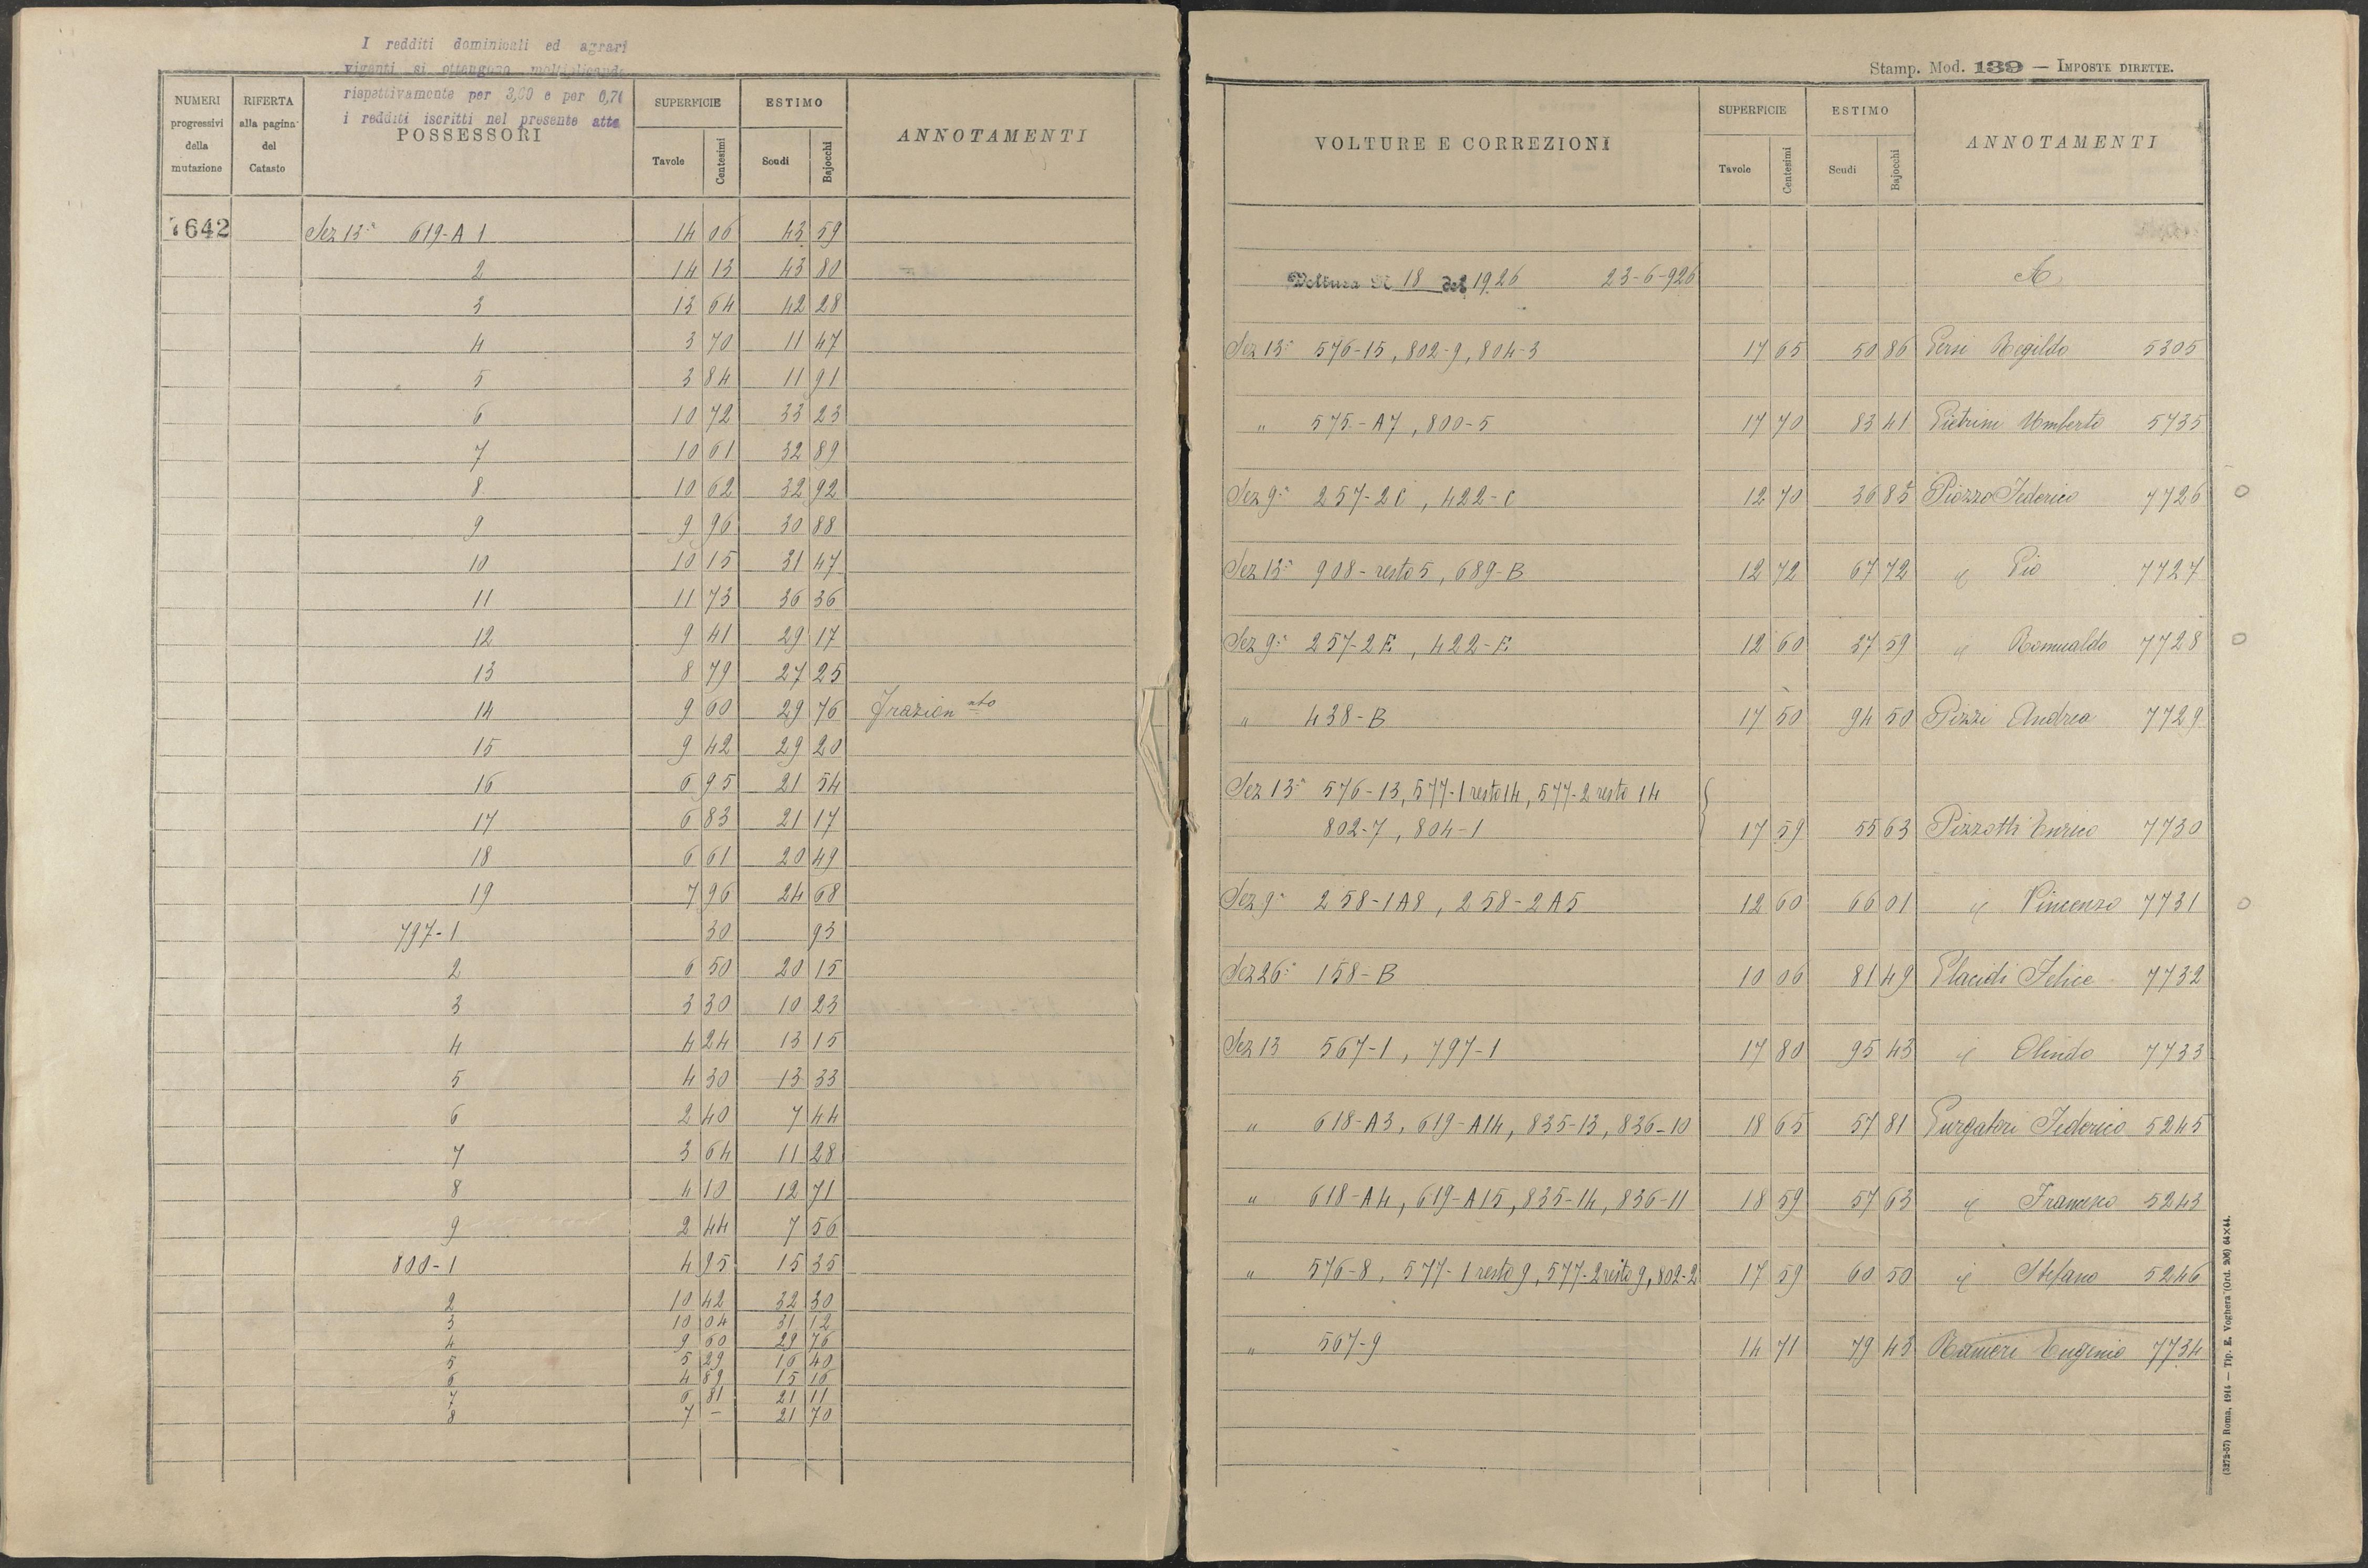 I redditi dominicali ed agrari
viganti si ottengono moltiplicando
rispettivamente per 3,00 e per 0,70
i redditi iscritti nel presente atto
NUMERI progressivi della mutazione | RIFERTA alla pagina del Catasto | POSSESSORI | SUPERFICIE Tavole Centesimi | ESTIMO Scudi Bajocchi | ANNOTAMENTI
7642 Sez 13ª 619-A 1 14 06 43 59
2 14 13 43 80
3 13 64 42 28
4 3 70 11 47
5 3 84 11 91
6 10 72 33 23
7 10 61 32 89
8 10 62 32 92
9 9 96 30 88
10 10 15 31 47
11 11 73 36 36
12 9 41 29 17
13 8 79 27 25
14 9 60 29 76 Frazionato
15 9 42 29 20
16 6 95 21 54
17 6 83 21 17
18 6 61 20 49
19 7 96 24 68
797-1 30 93
2 6 50 20 15
3 3 30 10 23
4 4 24 13 15
5 4 30 13 33
6 2 40 7 44
7 3 64 11 28
8 4 10 12 71
9 2 44 7 56
800-1 4 95 15 35
2 10 42 32 30
3 10 04 31 12
4 9 60 29 76
5 5 29 16 40
6 4 89 15 16
7 6 81 21 11
8 7 – 21 70
Stamp. Mod. 139 — IMPOSTE DIRETTE.
VOLTURE E CORREZIONI | SUPERFICIE Tavole Centesimi | ESTIMO Scudi Bajocchi | ANNOTAMENTI
Voltura N 18 del 1926 23-6-926 A
Sez 13ª 576-15, 802-9, 804-3 17 65 50 86 Persi Regildo 5305
" 575-A7, 800-5 17 70 83 41 Pietrini Umberto 5735
Sez 9ª 257-2C, 422-C 12 70 36 85 Piozzo Federico 7726
Sez 13ª 908-resto 5, 689-B 12 72 67 72 " Pio 7727
Sez 9ª 257-2E, 422-E 12 60 37 59 " Romualdo 7728
" 438-B 17 50 94 50 Pizzi Andrea 7729
Sez 13ª 576-13, 577-1 resto 14, 577-2 resto 14
802-7, 804-1 17 59 55 63 Pizzotti Enrico 7730
Sez 9ª 258-1A8, 258-2A5 12 60 66 01 " Vincenzo 7731
Sez 26ª 158-B 10 06 81 49 Placidi Felice 7732
Sez 13 567-1, 797-1 17 80 95 43 " Olindo 7733
" 618-A3, 619-A14, 835-13, 836-10 18 65 57 81 Purgatori Federico 5245
" 618-A4, 619-A15, 835-14, 836-11 18 59 57 63 " Francesco 5243
" 576-8, 577-1 resto 9, 577-2 resto 9, 802-2 17 59 60 50 " Stefano 5246
" 567-9 14 71 79 43 Ranieri Eugenio 7734
(3272-57) Roma, 1914 — Tip. E. Voghera (Ord. 206) 64×44.